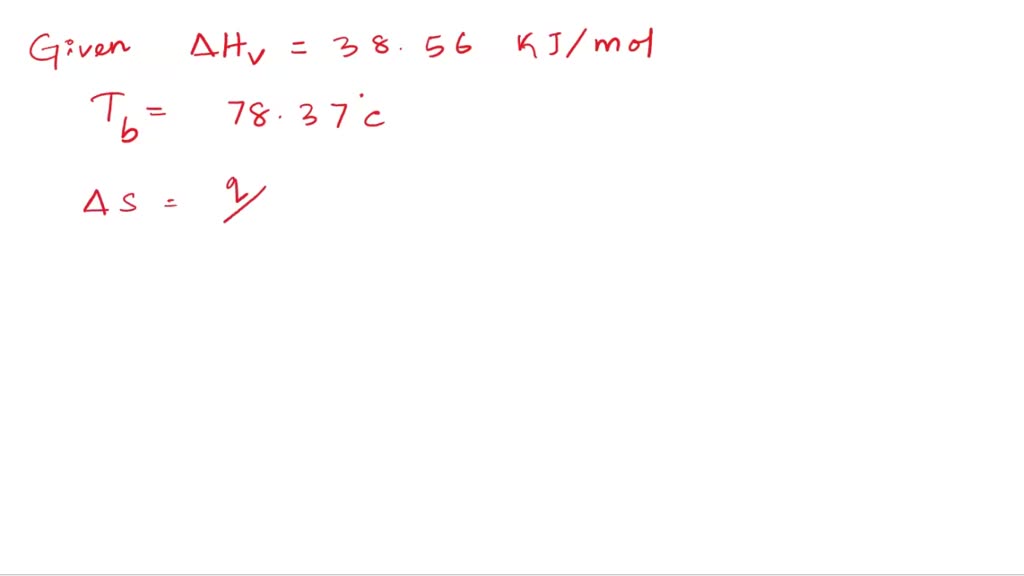 Given ΔHv = 38.56 KJ/mol
Tb = 78.37°c
ΔS = q/